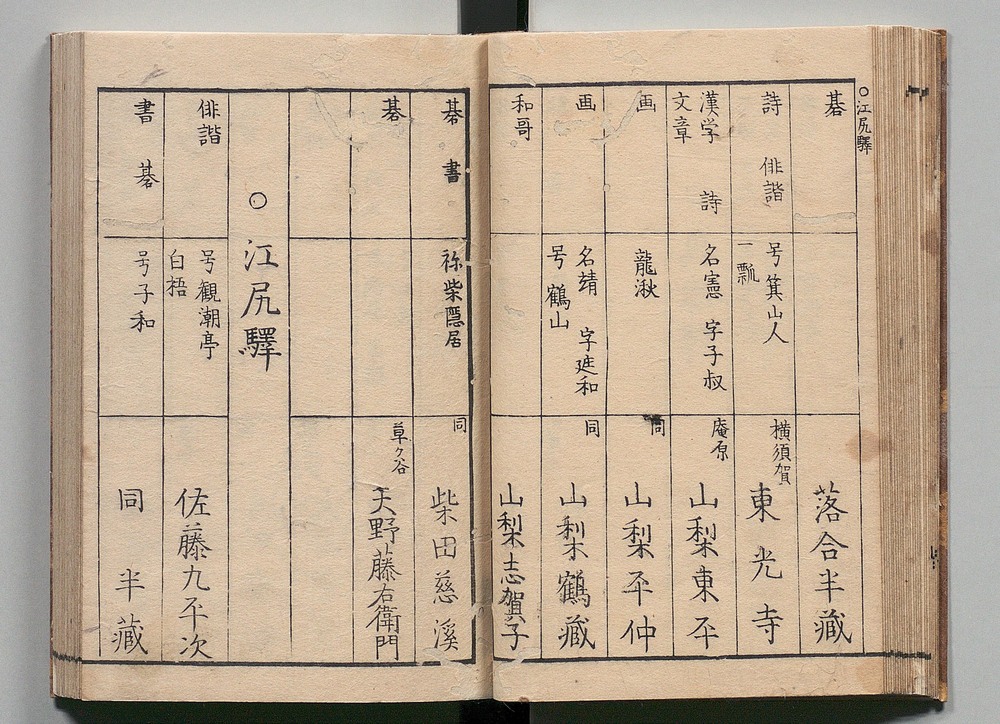 ○江尻驛
碁
落合半藏
詩 俳諧
号箕山人
一瓢
横須賀
東光寺
漢学 詩
文章
名憲 字子叔
庵原
山梨東平
画
龍湫
同
山梨平仲
画
名靖 字延和
号鶴山
同
山梨鶴藏
和哥
山梨志賀子
碁 書
称柴隠居
同
柴田慈溪
碁
草ケ谷
天野藤右衛門
○江尻驛
俳諧
号観潮亭
白梧
佐藤九平次
書 碁
号子和
同 半藏